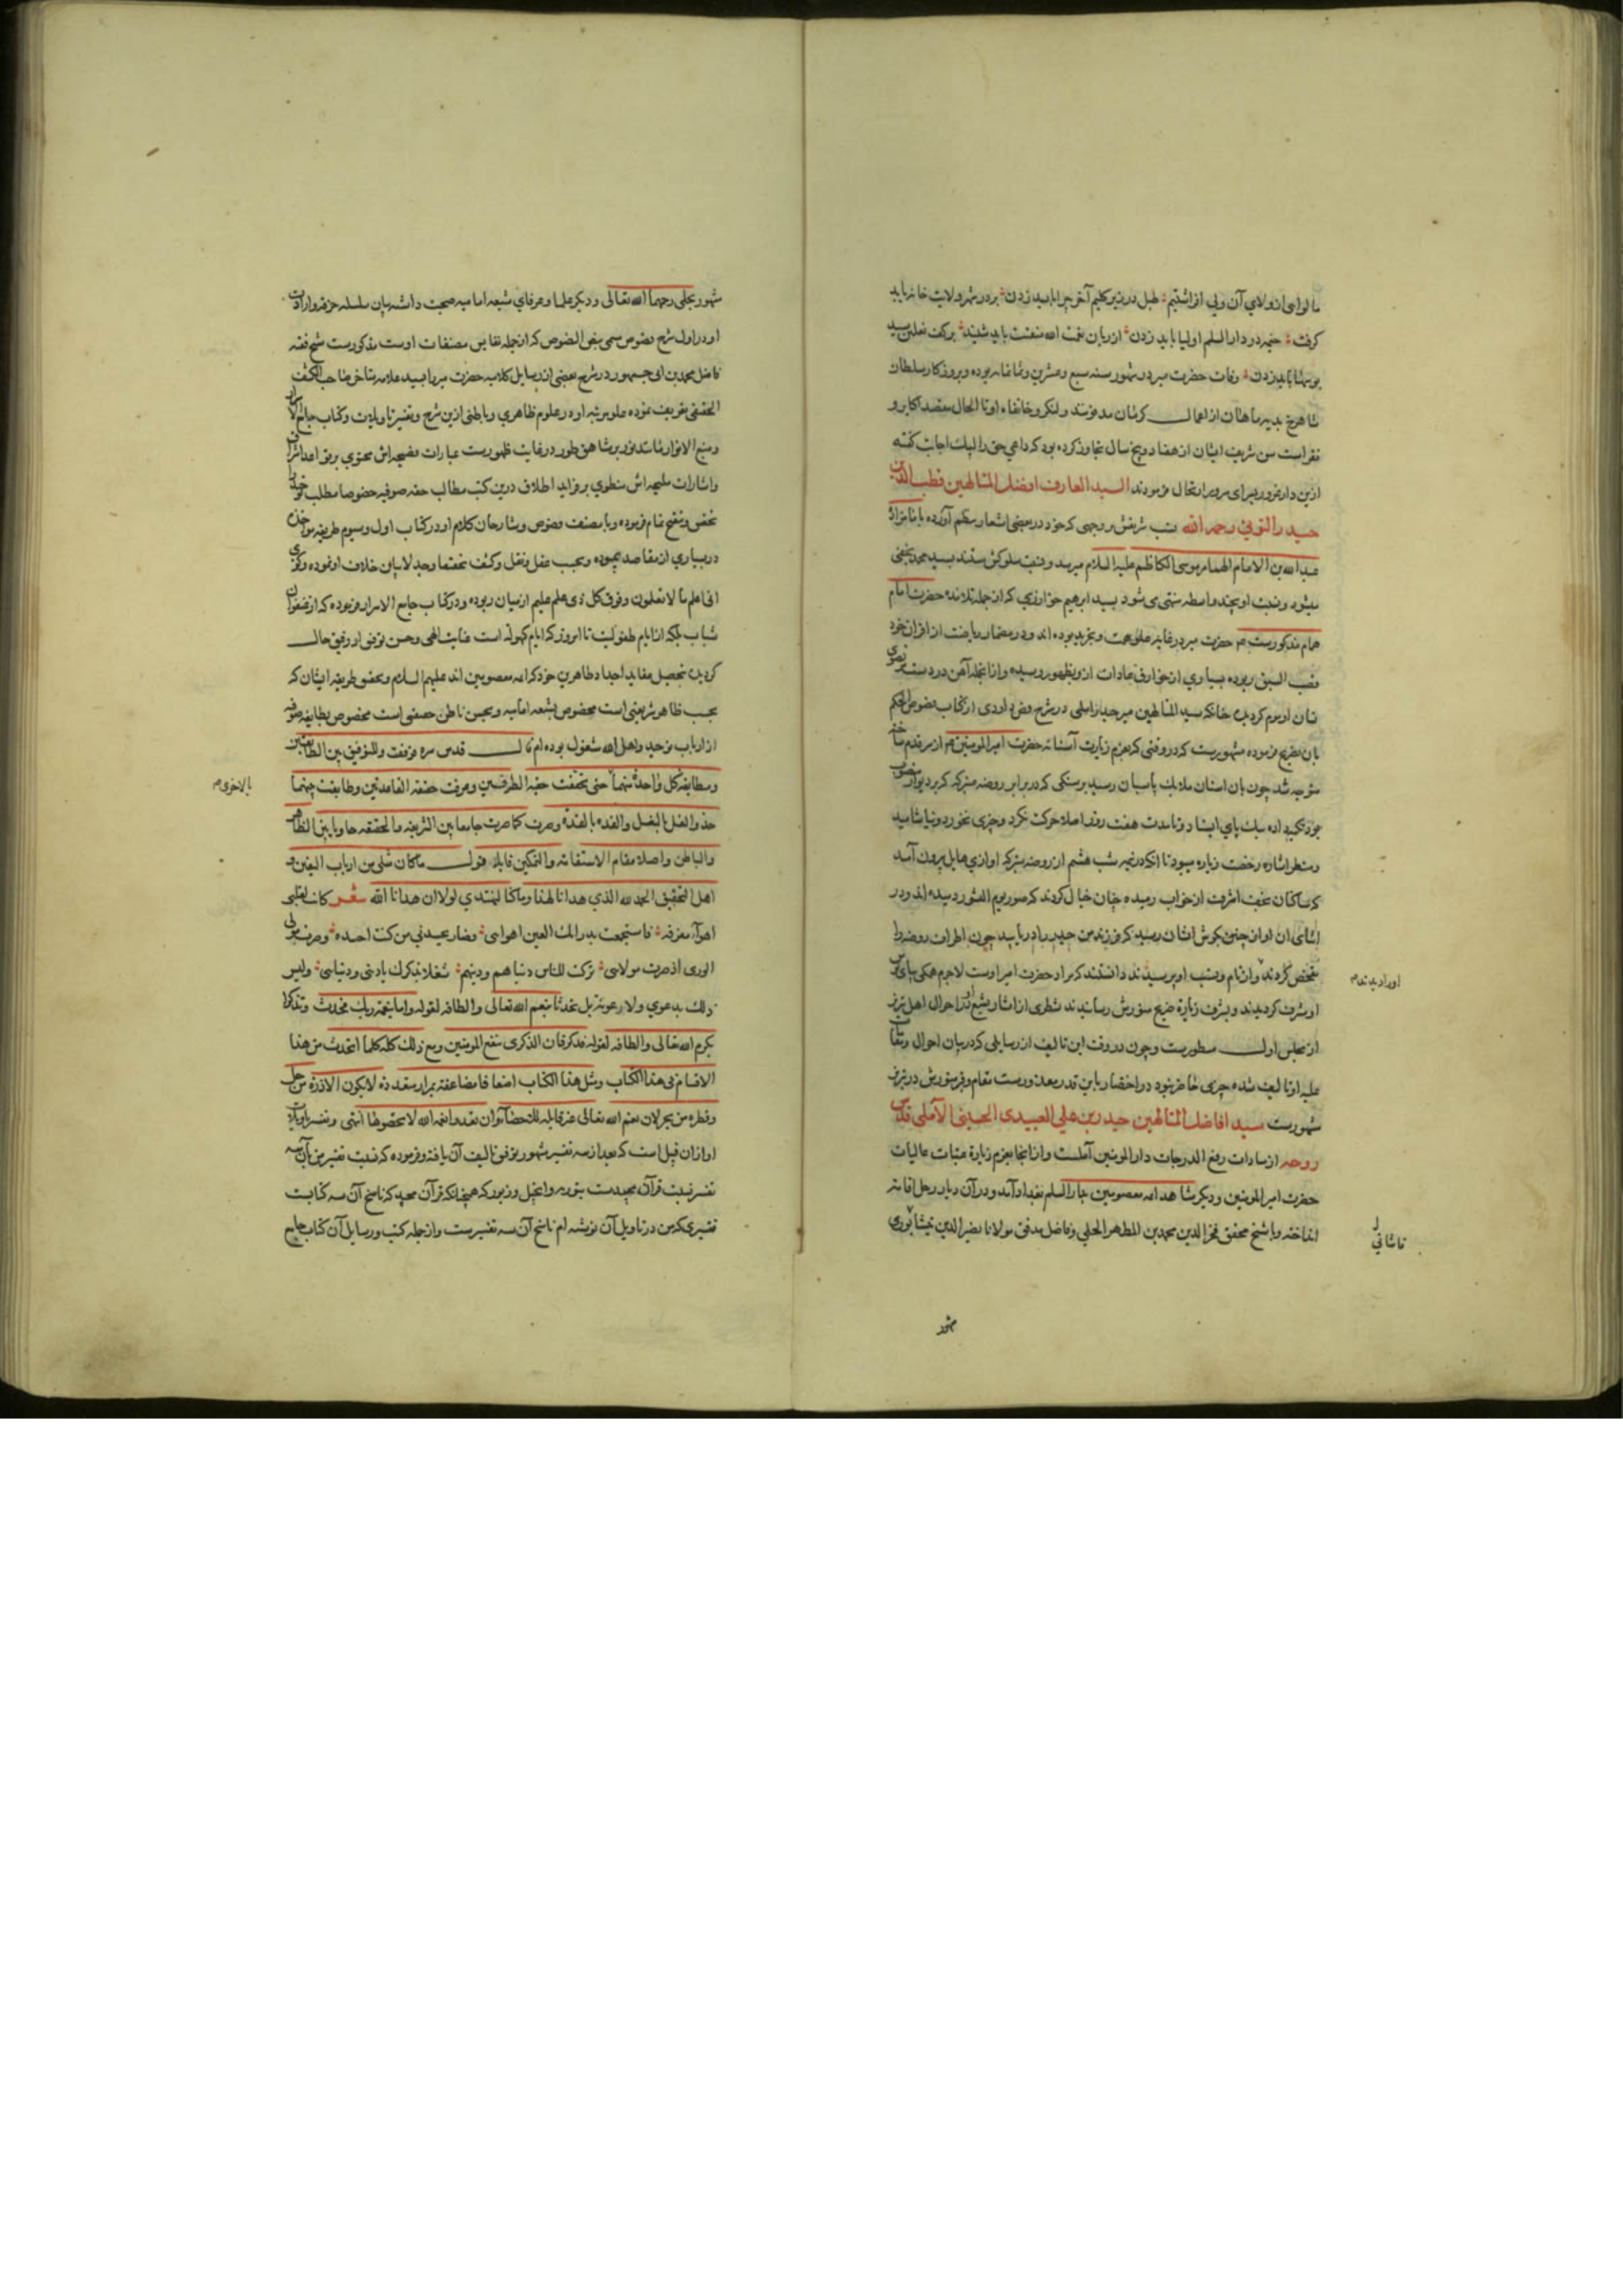 ما لوای از ولای آن ولی افراشتیم طبل در زیر کلیم آخر چرا باید زدن بر در شهر ولایت خانه باید
کرفت خیمه در دار السلم اولیا باید زدن از زبان نعمت الله منقبت باید شنید بر کف نعلین سید
بوسها باید زدن وفات حضرت میر در شهور سنه سبع و عشرین و ثمانمایه بوده و بروزکار سلطان
شاهرخ بدیه ماهان از اعمال کرمان مدفونند و لنکر و خانقاه او تا الحال مقصد اکابر و
فقراست سن شریف ایشان از هفتاد و پنج سال تجاوز کرده بود که داعی حق را لبیک اجابت کفته
ازین دار غرور بسرای سرور ارتحال فرمودند السید العارف افضل المتالهین قطب الدین
حیدر التونی رحمه الله نسب شریفش بروجهی که خود در بعضی اشعار بنظم آورده بامامزاده
عبد الله بن الامام الهمام موسی الکاظم علیه السلام میرسد و نسبت سلوکش بسید محمد نجفی
میشود و نسبت او بچند واسطه منتهی می شود بسید ابرهیم خوارزمی که از جمله تلامذه حضرت امام
همام مذکورست حضرت میر در غایت علو همت و تجرید بوده اند و در مضمار ریاضت از اقران خود
قصب السبق ربوده بسیاری از خوارق عادات ازو بظهور رسیده و از انجمله آهن در دست
نان او موم کردید چنانکه سید المتالهین میر حیدر املی در شرح فص داودی از کتاب فصوص الحکم
بان تصریح فرموده مشهورست که در وقتی که بعزم زیارت آستانه حضرت امیر المومنین از سر قدم ساخته
متوجه شد چون بان استان ملایک پاسبان رسید بر سنکی که در برابر روضه متبرکه که بر دیوار منصوب
بود تکیه داده بیک پای ایستاد و تا مدت هفت روز اصلا حرکت نکرد و چیزی نخورد و نیاشامید
و منتظر اشاره رخصت زیاره میبود تا انکه در نیمه شب هشتم از روضه متبرکه اوازی هایل بیرون آمد
که ساکنان نجف اشرف از خواب رمیده چنان خیال کردند که صور یوم النشور دمیده اند و در
اثنای ان اواز چنین بکوش ایشان رسید که فرزند من حیدر را دریابید چون اطراف روضه را
تفحص کردند و از نام و نسب او پرسیدند دانستند که مراد حضرت امیر اوست لاجرم همکی بپای بوس
او مشرف کردیدند و بشرف زیارة ضریح منورش رسانیدند شطری از اثار تشیع او در احوال اهل تبریز
از مجلس اول مسطورست و چون در وقت این تالیف از رسایلی که در بیان احوال و مقامات
علیه او تالیف شده چیزی حاضر نبود در اختصار باین قدر معذورست مقام و قبر منورش در تبریز
مشهورست سید افاضل المتالهین حیدر بن علی العبیدی الحسینی الآملی قدس
روحه از سادات رفیع الدرجات دار المومنین آملست و از انجا بعزم زیارة عتبات عالیات
حضرت امیر المومنین و دیکر مشاهد ایمه معصومین بدار السلم بغداد آمد و در آن دیار رحل اقامت
انداخته و با شیخ محقق فخر الدین محمد بن المطهر الحلی و فاضل مدقق مولانا نصیر الدین نیشابوری
او را دیدند
قاشانی
مشهور
مشهور بحلی رحمهما الله تعالی و دیکر علما و عرفای شیعه امامیه صحبت داشته بیان سلسله خرقه و ارادت
او در اول شرح فصوص مسمی بنص النصوص که از جمله نفایس مصنفات اوست مذکورست شیخ فقیه
فاضل محمد بن ابی جمهور در شرح بعضی از رسایل کلامیه حضرت میر را بسید علامه متاخر صاحب الکشف
الحقیقی تعریف نموده علو مرتبه او در علوم ظاهری و باطنی ازین شرح و تفسیر تاویلات و کتاب جامع الاسرار
و منبع الانوار مانند نور بر شاهق طور در غایت ظهورست عبارات فصیحه اش محتوی بر
واشارات ملیحه اش منطوی بر فواید اطلاق درین کتب مطالب حقه صوفیه خصوصا مطلب توحید را
بفحص و تنقیح تمام فرموده و با مصنف فصوص و شارحان کلام او در کتاب اول و سیوم طریقه مواخذه
در بسیاری از مقاصد پیموده و بحسب عقل و نقل و کشف بیان خلاف او نموده و کوی
انی اعلم ما لا تعلمون و فوق کل ذی علم علیم از میان ربوده و در کتاب جامع الاسرار فرموده که از عنفوان
شباب بلکه از ایام طفولیت تا امروز که ایام کهولة است عنایت الهی و حسن توفیق او رفیق حال
کردیده بتحصیل عقاید اجداد طاهرین خود که ایمه معصومین اند علیهم السلام و تحقیق طریقه ایشان که
بحسب ظاهر شریعتی است مخصوص بشیعه امامیه و بحسب باطن حقیقتی است مخصوص بطایفه صوفیه
از ارباب توحید و اهل الله مشغول بوده ام قال قدس سره فوفقت للتوفیق بین الطایفتین
ومطابقة کل واحدة منهما حتی تحققت حقیة الطرفین وعرفت حقیقة القاعدتین وطابقت بینهما
حذو النعل بالنعل والقذة بالقذة وصرت کما صرت جامعا بین الشریعة والحقیقة حاویا بین الظاهر
والباطن واصلا مقام الاستقامة والتمکین قایلا بقول ما کان مثلی من ارباب الیقین و
اهل التحقیق الحمد لله الذی هدانا لهذا وما کنا لنهتدی لولا ان هدانا الله شعر کانت لقلبی
اهوآء مفرقه فاستجمعت مذ راتک العین اهوایی فصار یحسدنی من کنت احسده وصرت مولی
الوری اذ صرت مولایی ترکت للناس دنیاهم ودینهم شغلا بذکرک یا دینی ودنیایی ولیس
ذلک بدعوی ولا رعونة بل تحدثا بنعم الله تعالی والطافه لقوله واما بنعمة ربک فحدث وتذکرا
بکرم الله تعالی والطافه لقوله فذکر فان الذکری تنفع المومنین ومع ذلک کله کلما اتحدث من هذا
الاقسام فی هذا الکتاب ومثل هذا الکتاب اضعافا مضاعفة بمرار متعددة لا یکون الا ذرة من جبل
وقطرة من بحر لان نعم الله تعالی غیر قابلة للتحصا وان تعدوا نعمة الله لا تحصوها انتهی و تفسیر تاویلات
او از ان قبیل است که بعد از سه تفسیر مشهور توفیق تالیف آن یافته و فرموده که نسبت تفسیر من بآن سه
تفسیر نسبت قرآن مجیدست بتوریه و انجیل و زبور که همچنانکه قرآن مجید که ناسخ آن سه کتابست
تفسیری که من در تاویل آن نوشته ام ناسخ آن سه تفسیرست و از جمله کتب و رسایل آن کتاب جامع
بالاخری